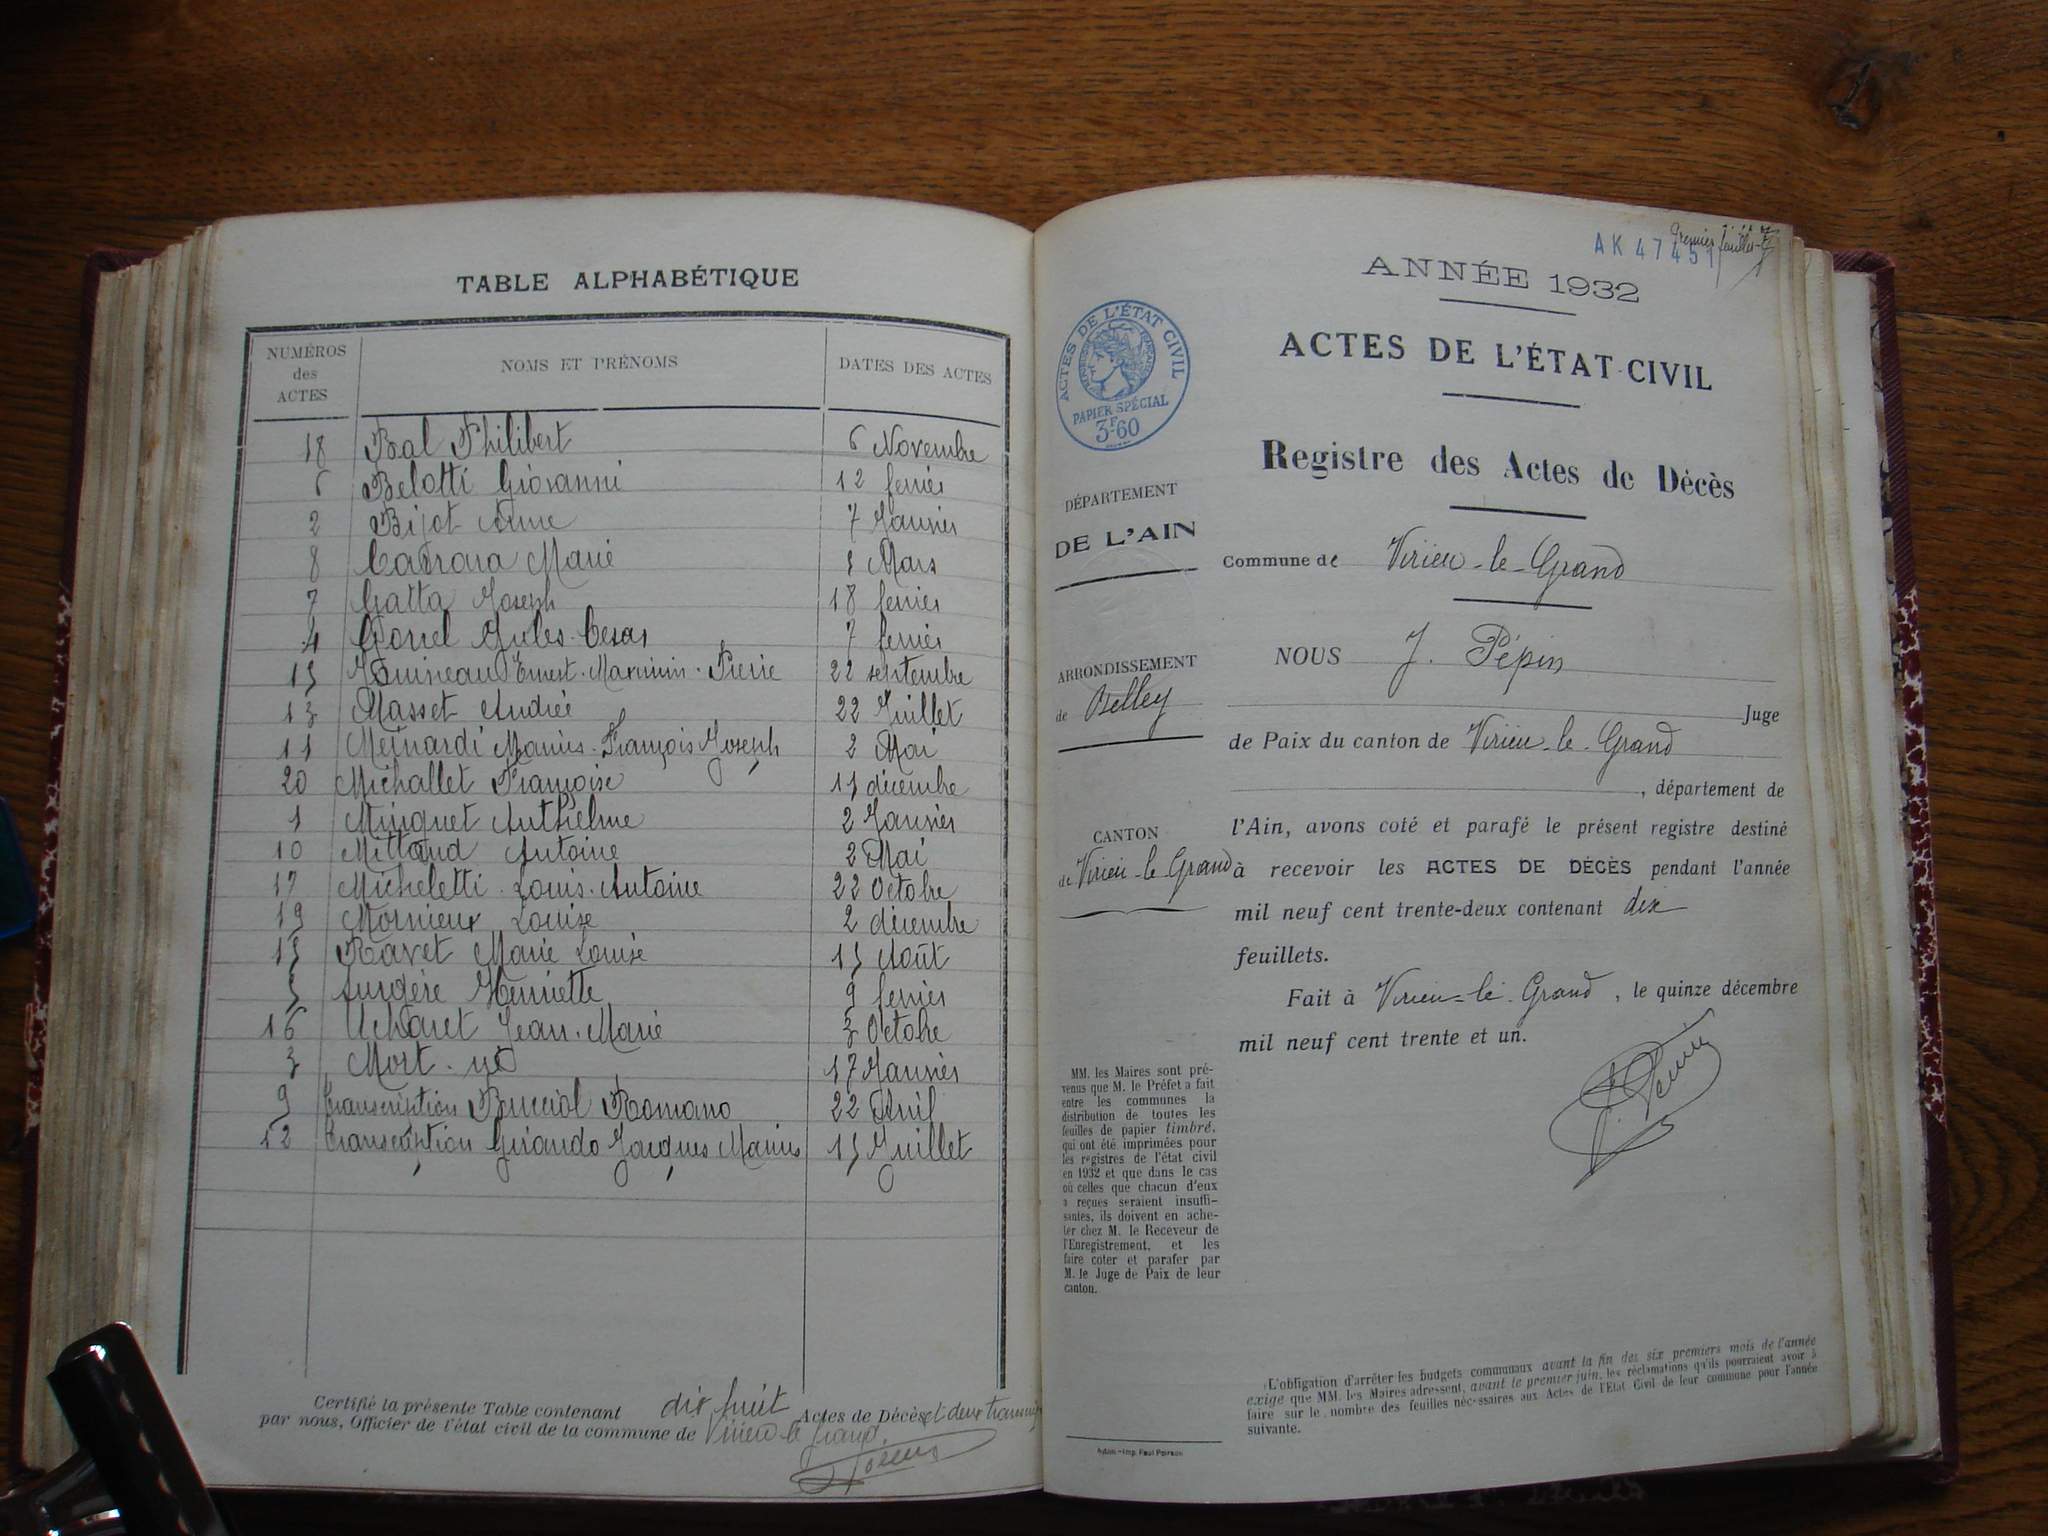 TABLE ALPHABÉTIQUE
NUMÉROS des ACTES NOMS ET PRÉNOMS DATES DES ACTES
18 Bal Philibert 6 Novembre
6 Belotti Giovanni 12 fevrier
2 Bijot Anne 7 Janvier
8 Carrara Marie Mars
7 Gatta Joseph 18 fevrier
4 Gonel Jules César 7 fevrier
Ernest Pierre 22 septembre
13 Masset André 22 Juillet
11 Meinardi Marius François Joseph 2 Mai
20 Michallet Françoise 11 décembre
1 Minguet Anthelme 2 Janvier
10 Mittaud Antoine 2 Mai
17 Micheletti Louis Antoine 22 Octobre
19 Mornieux Louise 2 décembre
15 Ravet Marie Louise 15 Août
5 Henriette 9 fevrier
16 Ucharet Jean-Marie 3 Octobre
3 Mort-né 17 Janvier
9 transcription Romano 22 Avril
12 transcription Girando Jacques Marius 15 Juillet
Certifié la présente Table contenant dix huit Actes de Décès et deux
par nous, Officier de l'état civil de la commune de Virieu-le-Grand.
AK 47451
Premier feuillet
ANNÉE 1932
ACTES DE L'ÉTAT CIVIL
ACTES DE L'ÉTAT CIVIL
PAPIER SPÉCIAL
3F60
Registre des Actes de Décès
DÉPARTEMENT
DE L'AIN
Commune de Virieu-le-Grand
ARRONDISSEMENT
de Belley
NOUS J. Pépin
Juge
de Paix du canton de Virieu-le-Grand
, département de
CANTON
de Virieu-le-Grand
l'Ain, avons coté et parafé le présent registre destiné
à recevoir les ACTES DE DÉCÈS pendant l'année
mil neuf cent trente-deux contenant dix
feuillets.
Fait à Virieu-le-Grand, le quinze décembre
mil neuf cent trente et un.
MM. les Maires sont pré-
venus que M. le Préfet a fait
entre les communes la
distribution de toutes les
feuilles de papier timbré,
qui ont été imprimées pour
les registres de l'état civil
en 1932 et que dans le cas
où celles que chacun d'eux
a reçues seraient insuffi-
santes, ils doivent en ache-
ter chez M. le Receveur de
l'Enregistrement, et les
faire coter et parafer par
M. le Juge de Paix de leur
canton.
L'obligation d'arrêter les budgets communaux avant la fin des six premiers mois de l'année
exige que MM. les Maires adressent, avant le premier juin, les réclamations qu'ils pourraient avoir à
faire sur le nombre des feuilles nécessaires aux Actes de l'État Civil de leur commune pour l'année
suivante.
Imp. Paul